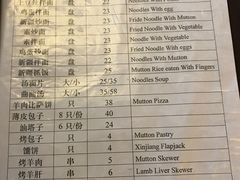 盘 22 Noodles with
鸡蛋拌面 盘 22 Noodles with egg
新疆炒面 盘 23 Fride Noodle with Mutton
素炒面 盘 22 Fried Noodle with Vegetable
素拌面 盘 22 Noodle with Vegetable
鸡蛋炒面 盘 23 Noodles with egg
新疆拌面 盘 22 Noodles With Mutton
新疆抓饭 盘 25 Mutton Rice eaten With Fingers
汤面片 大/小 25/15 Noodles Soup
大/小 35/58
羊肉比萨饼 只 38 Mutton Pizza
薄皮包子 8只/份 40
油塔子 6只/份 24
烤包子 只 4 Mutton Pastry
馕饼 只 4 Xinjiang Flapjack
烤羊肉 串 5 Mutton Skewer
烤羊肝 串 6 Lamb Liver Skewer